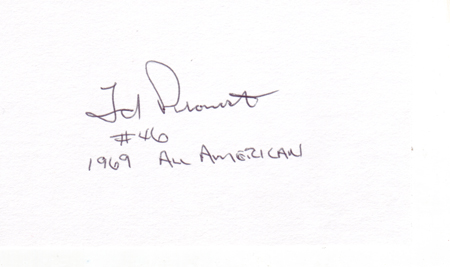 Ted Provost
#46
1969 ALL AMERICAN